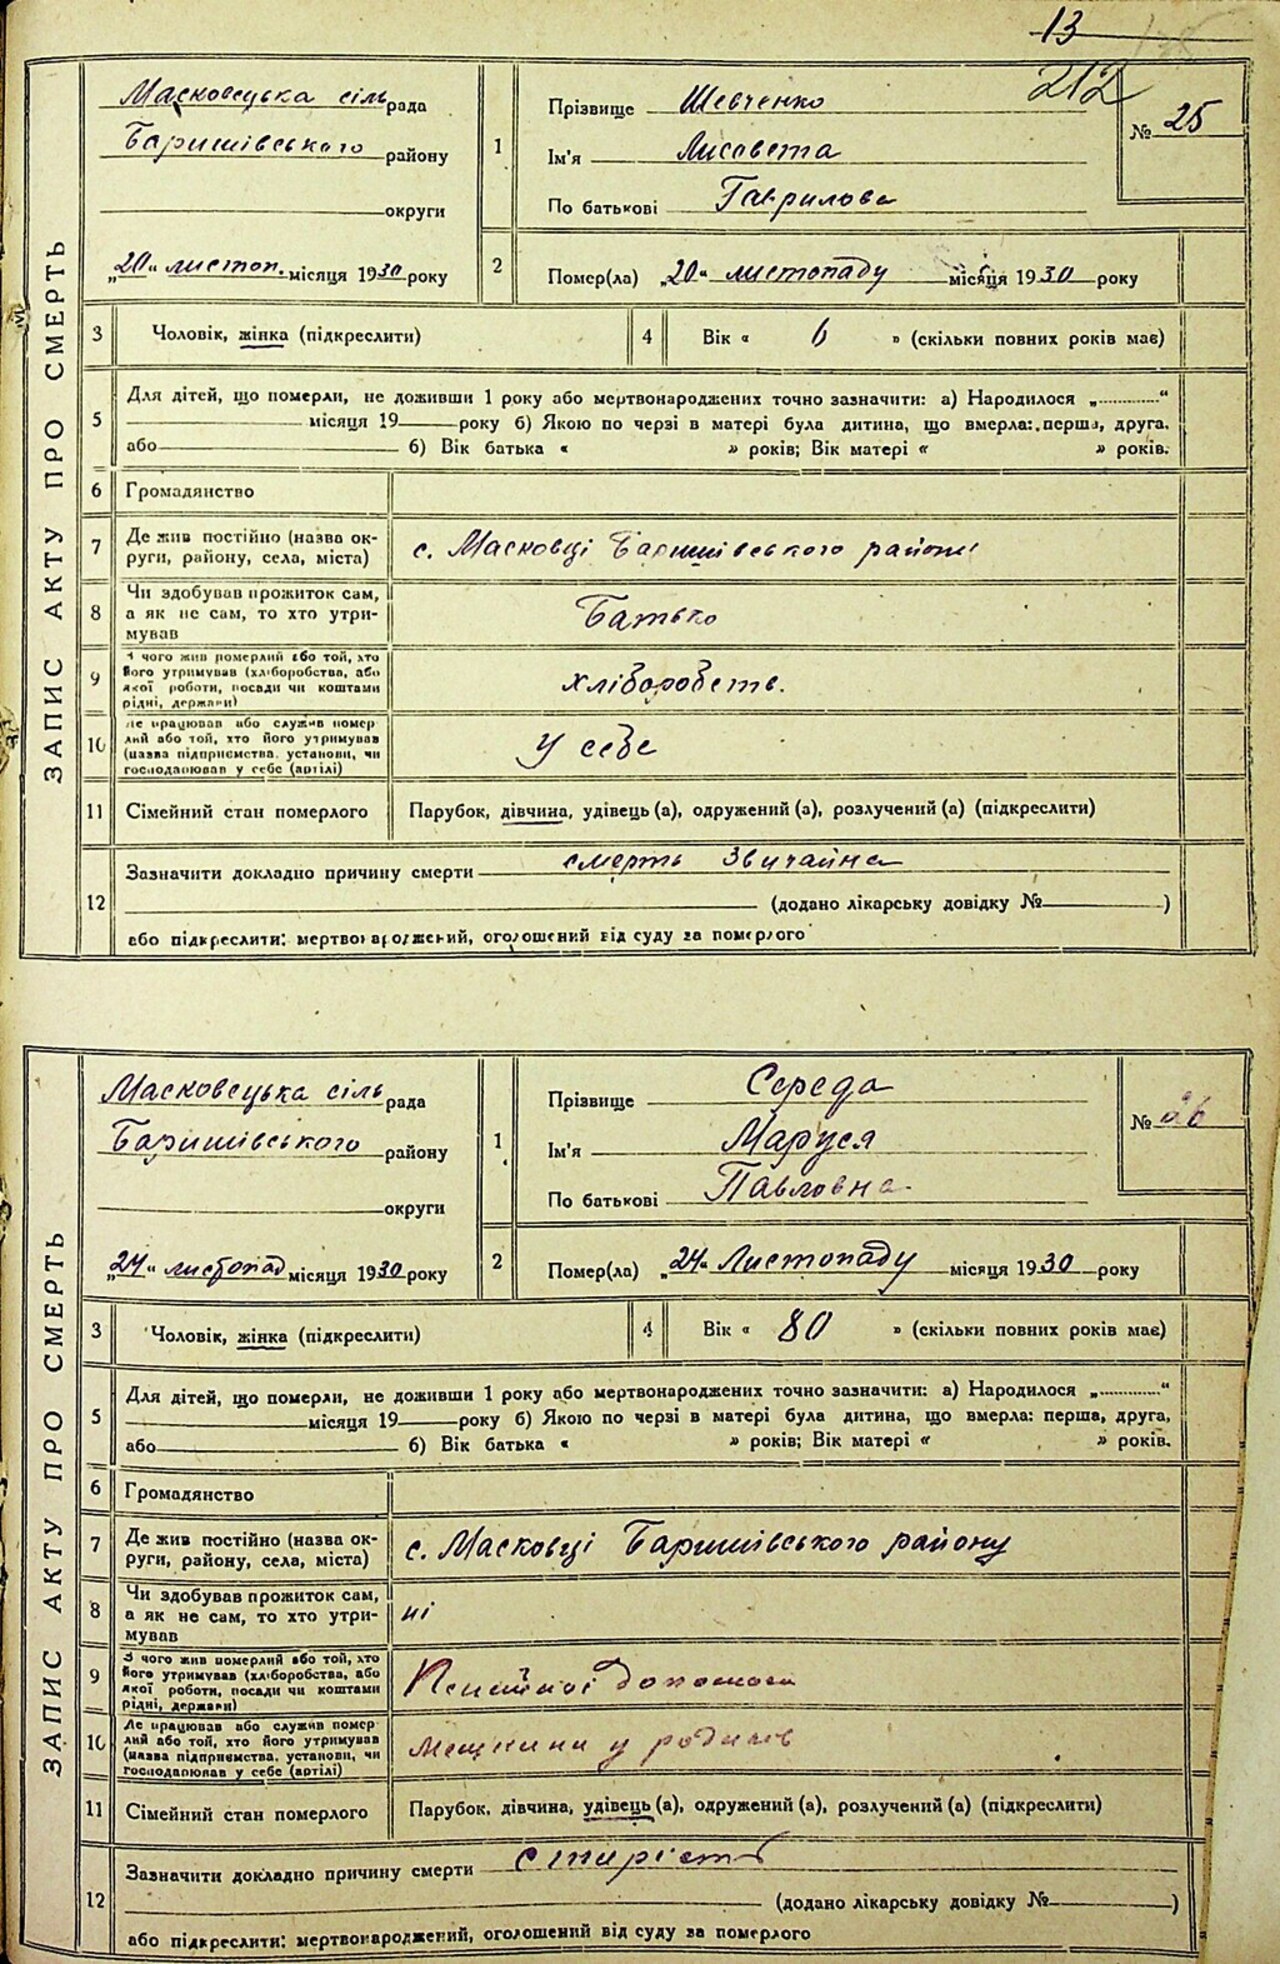 13
212
ЗАПИС АКТУ ПРО СМЕРТЬ
Масковецька сільрада
Баришівського району
округи
„20“ листоп. місяця 1930 року
1
Прізвище Шевченко
Ім'я Лисавета
По батькові Гаврилова
№ 25
2
Помер(ла) „20“ листопаду місяця 1930 року
3 Чоловік, жінка (підкреслити)
4 Вік « 6 » (скільки повних років має)
5 Для дітей, що померли, не доживши 1 року або мертвонароджених точно зазначити: а) Народилося „.............“
місяця 19 року б) Якою по черзі в матері була дитина, що вмерла: перша, друга,
або б) Вік батька « » років; Вік матері « » років.
6 Громадянство
7 Де жив постійно (назва ок-
руги, району, села, міста)
с. Масковці Баришівського району
8 Чи здобував прожиток сам,
а як не сам, то хто утри-
мував
Батько
9 З чого жив померлий або той, хто
його утримував (хліборобства, або
якої роботи, посади чи коштами
рідні, держави)
хліборобств.
10 Де працював або служив помер
лий або той, хто його утримував
(назва підприємства, установи, чи
господарював у себе (артілі)
У себе
11 Сімейний стан померлого Парубок, дівчина, удівець (а), одружений (а), розлучений (а) (підкреслити)
12 Зазначити докладно причину смерти смерть звичайна
(додано лікарську довідку № )
або підкреслити: мертвонароджений, оголошений від суду за померлого
ЗАПИС АКТУ ПРО СМЕРТЬ
Масковецька сільрада
Баришівського району
округи
„24“ листопад місяця 1930 року
1
Прізвище Середа
Ім'я Маруся
По батькові Павловна
№ 26
2
Помер(ла) „24“ Листопаду місяця 1930 року
3 Чоловік, жінка (підкреслити)
4 Вік « 80 » (скільки повних років має)
5 Для дітей, що померли, не доживши 1 року або мертвонароджених точно зазначити: а) Народилося „.............“
місяця 19 року б) Якою по черзі в матері була дитина, що вмерла: перша, друга,
або б) Вік батька « » років; Вік матері « » років.
6 Громадянство
7 Де жив постійно (назва ок-
руги, району, села, міста)
с. Масковці Баришівського району
8 Чи здобував прожиток сам,
а як не сам, то хто утри-
мував
ні
9 З чого жив померлий або той, хто
його утримував (хліборобства, або
якої роботи, посади чи коштами
рідні, держави)
допомоги
10 Де працював або служив помер
лий або той, хто його утримував
(назва підприємства, установи, чи
господарював у себе (артілі)
у родичів
11 Сімейний стан померлого Парубок, дівчина, удівець (а), одружений (а), розлучений (а) (підкреслити)
12 Зазначити докладно причину смерти старість
(додано лікарську довідку № )
або підкреслити: мертвонароджений, оголошений від суду за померлого